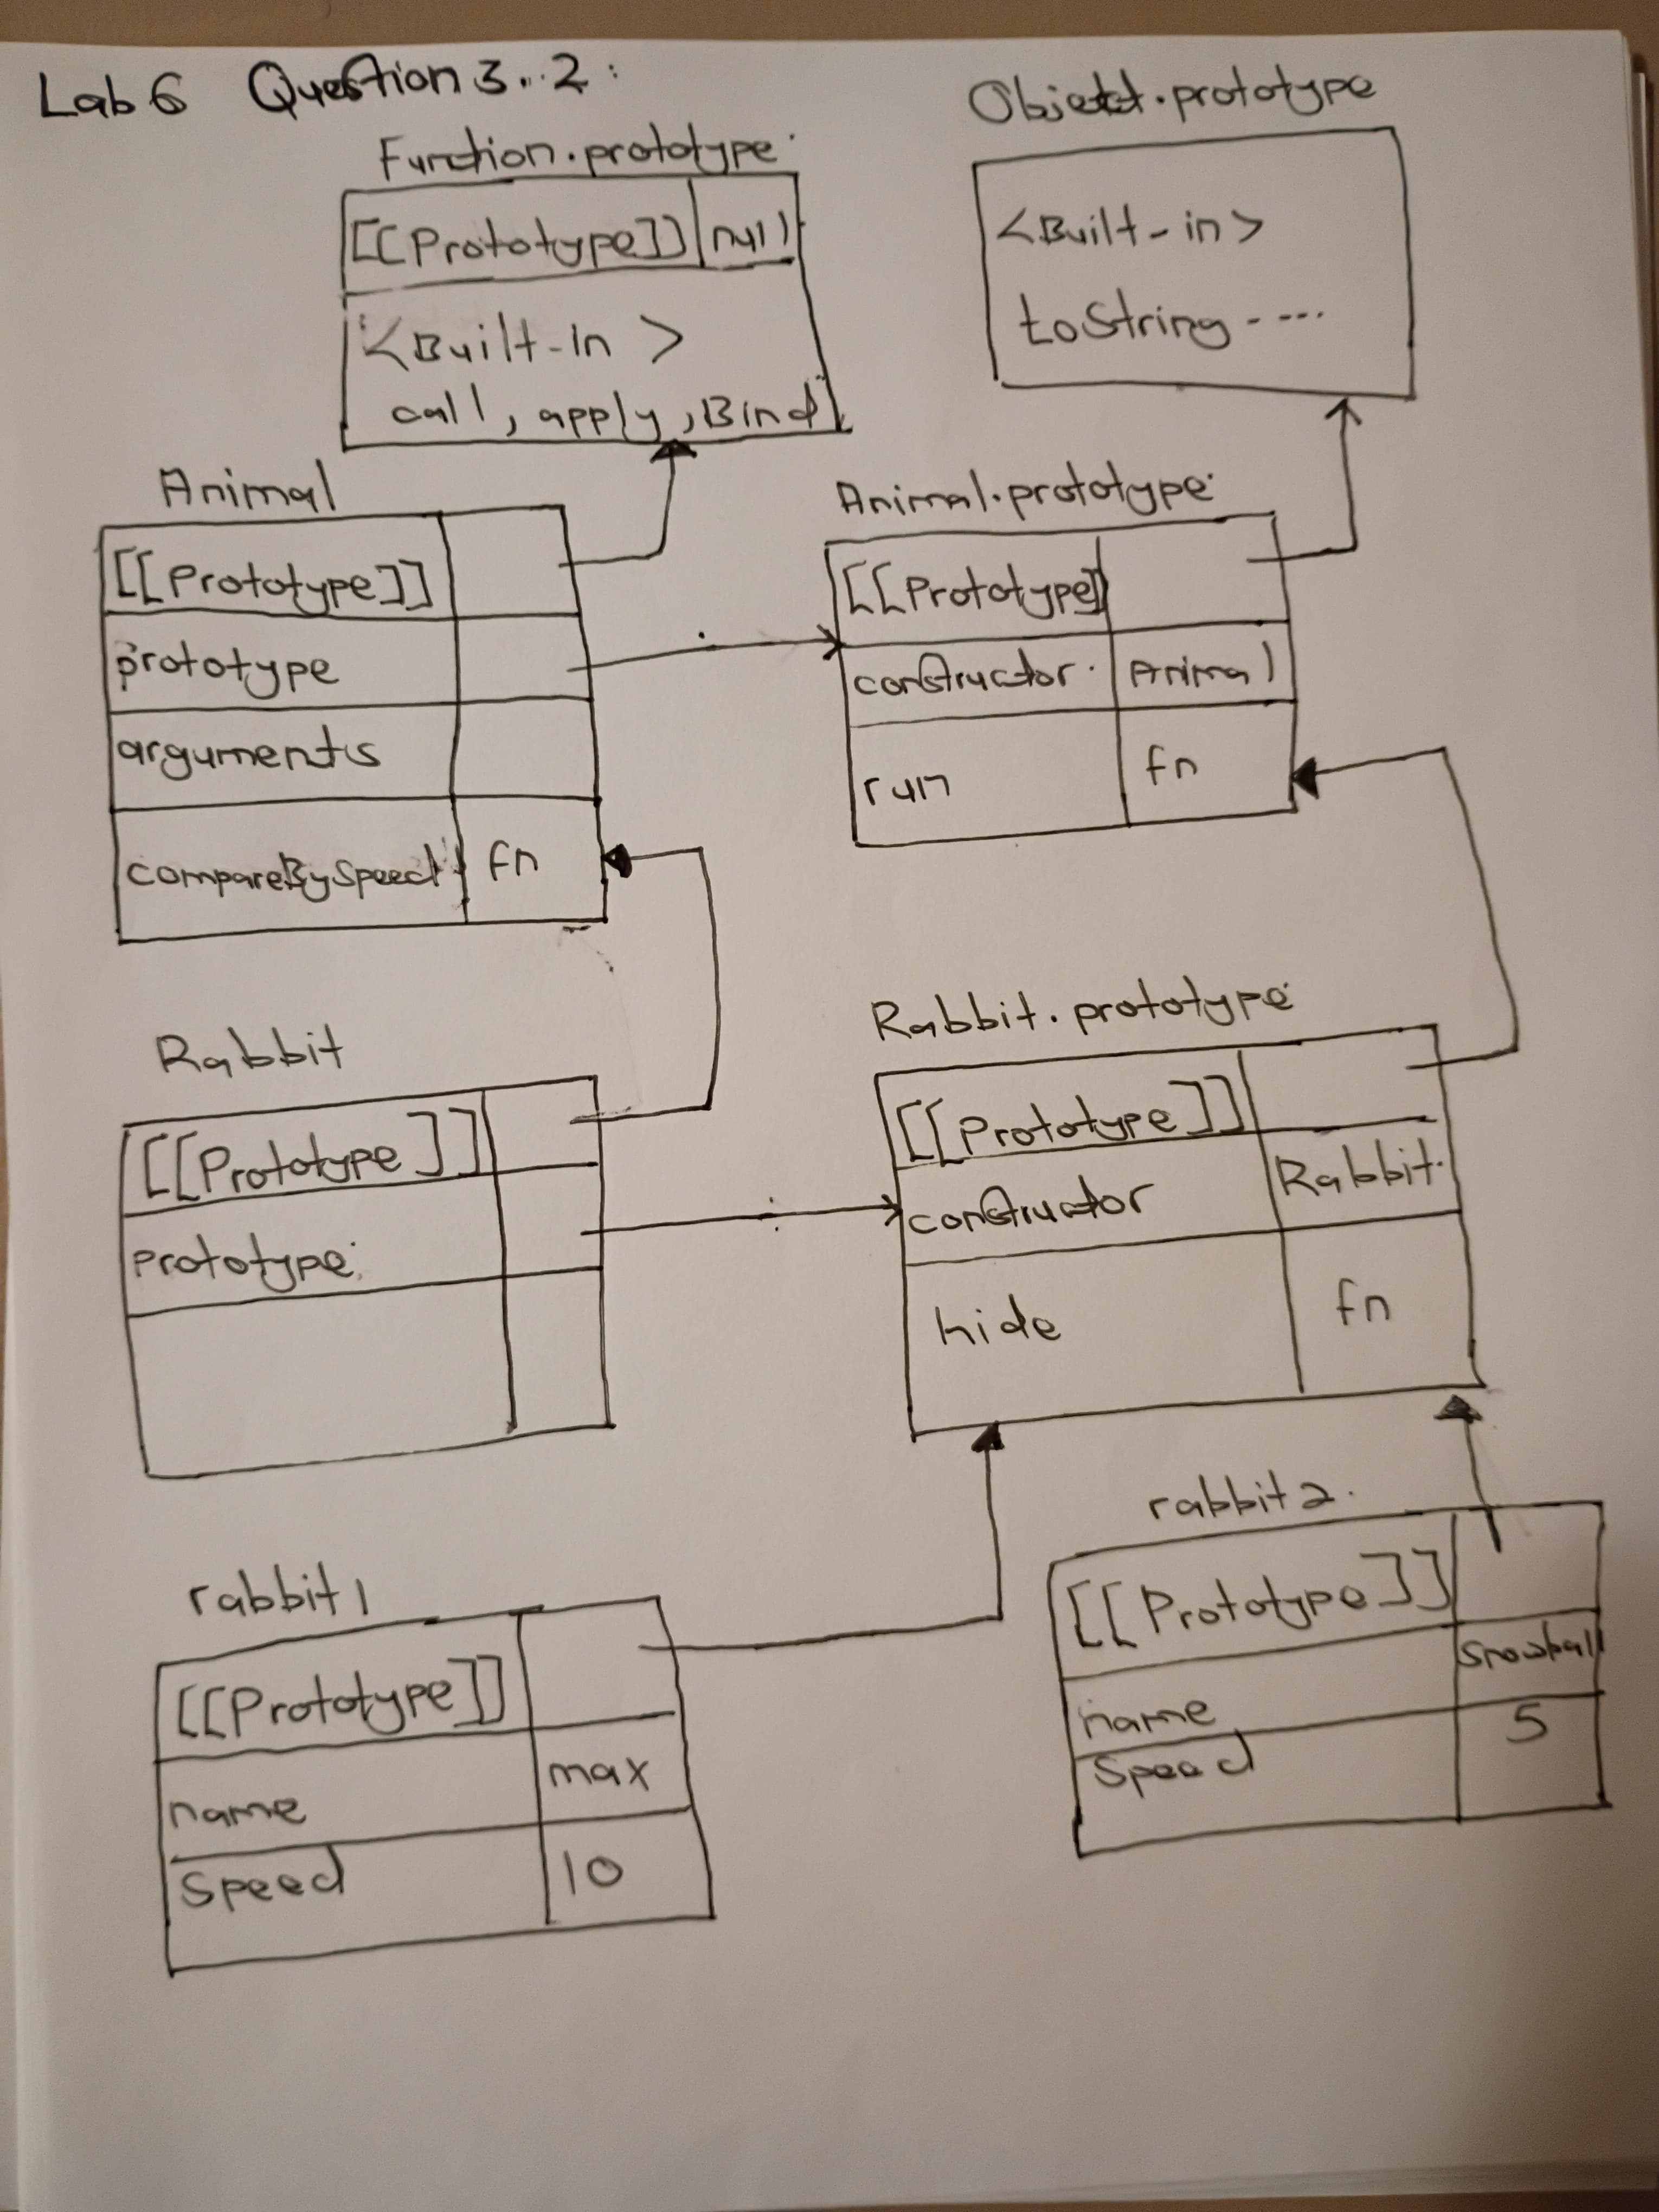 Lab 6 Question 3..2:
Function.prototype
[[Prototype]] null
<Built-in>
call, apply, Bind
Object.prototype
<Built-in>
toString-----
Animal
[[Prototype]]
prototype
arguments
compareBySpeed fn
Animal.prototype
[[Prototype]]
constructor Animal
run fn
Rabbit
[[Prototype]]
prototype
Rabbit.prototype
[[Prototype]]
constructor Rabbit
hide fn
rabbit1
[[Prototype]]
name max
Speed 10
rabbit2
[[Prototype]]
name Snowball
Speed 5